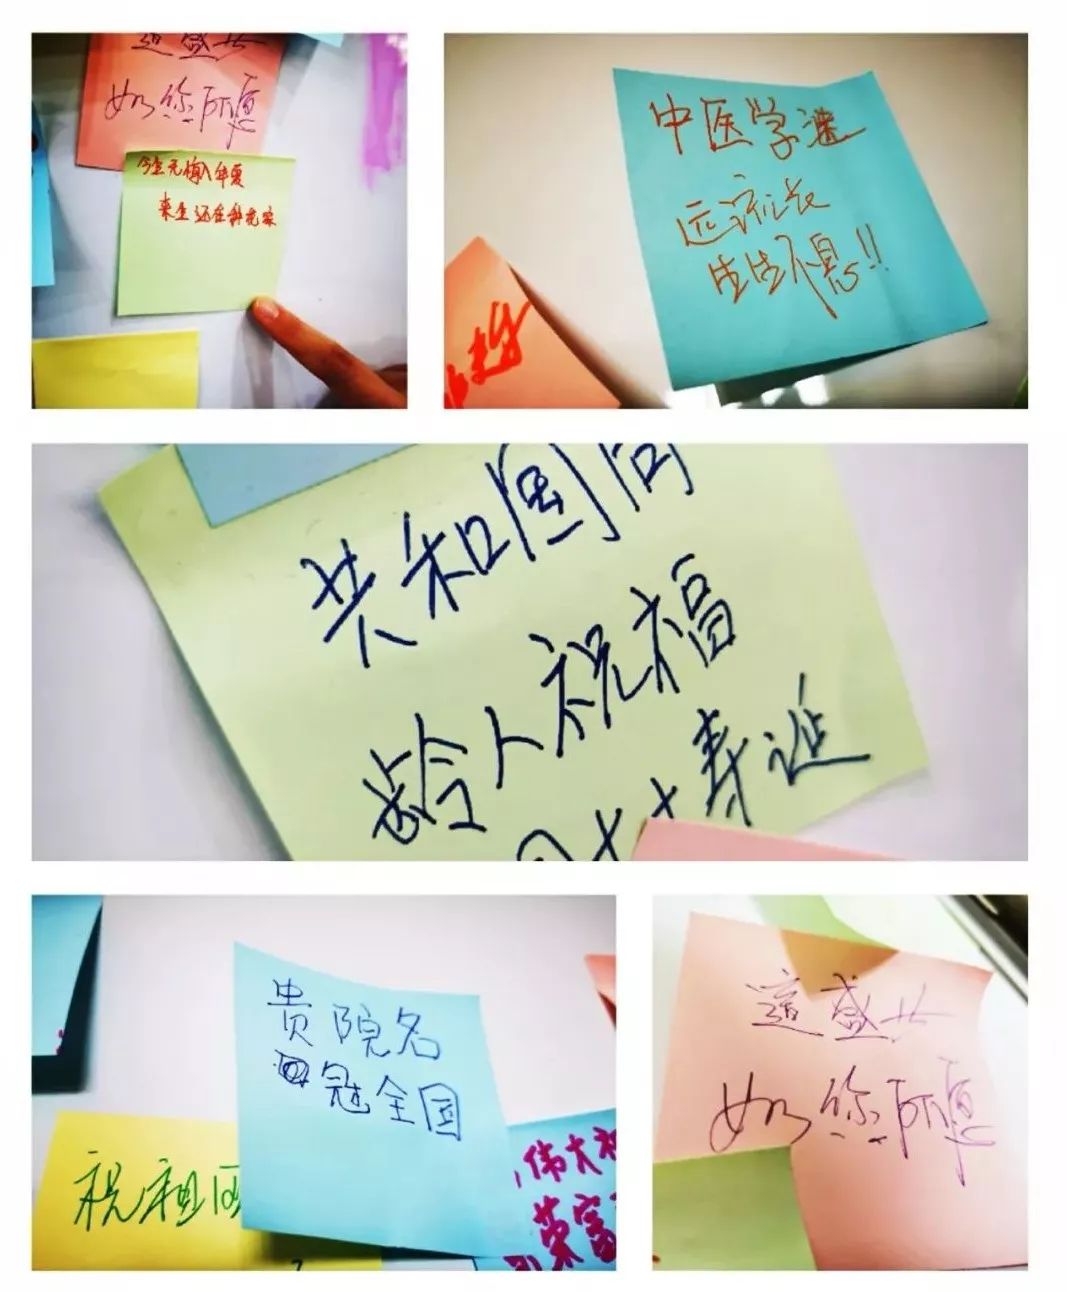 这盛世
如您所愿
今生无悔入华夏
来生还在种花家
中医学渊
远流长
生生不息!!
共和国同
龄人祝福
寿诞
贵院名
冠全国
祝祖国
伟大祖
荣富
这盛世
如您所愿